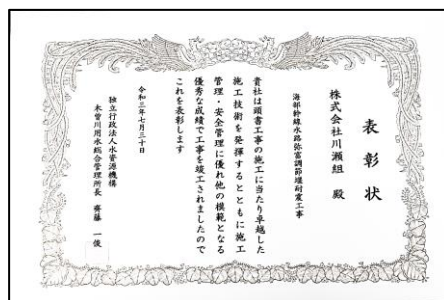 表彰状
株式会社川瀬組 殿
海部幹線水路弥富調節堰耐震工事
貴社は頭書工事の施工に当たり卓越した
施工技術を発揮するとともに施工
管理・安全管理に優れ他の模範となる
優秀な成績で工事を竣工されましたので
これを表彰します
令和三年七月三十日
独立行政法人水資源機構
木曽川用水総合管理所長 齊藤 一俊